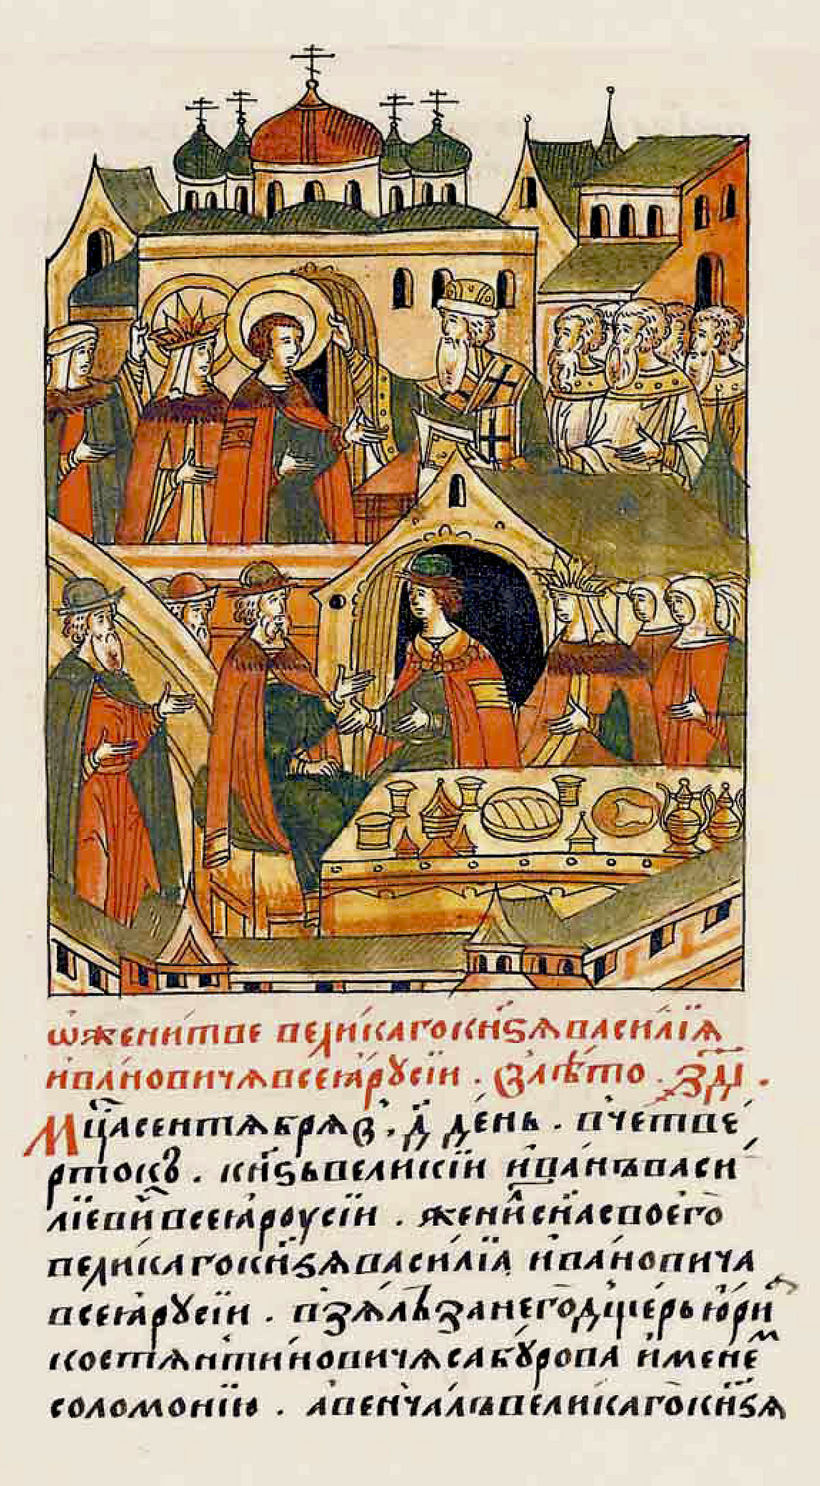 ѡ женитве великаго кн҃ѕѧ василїѧ
ивановичѧ всеꙗ рꙋсїи . в лѣто . ҂з҃дı .
Мцⷭ҇а сентѧбрѧ в . д҃ день . в четве
рток̾ . кн҃ѕь великїи иванъ васи
лїевиⷱ всеꙗ роусїи . жениⷧ сн҃а своего
великаго кн҃ѕѧ василїа ивановича
всеꙗ рꙋсїи . взѧлъ за него дщерь юриꙗ
костѧнтиновичѧ сабꙋрова именеⷨ
соломонїю . а венчалъ великаго кн҃ѕѧ